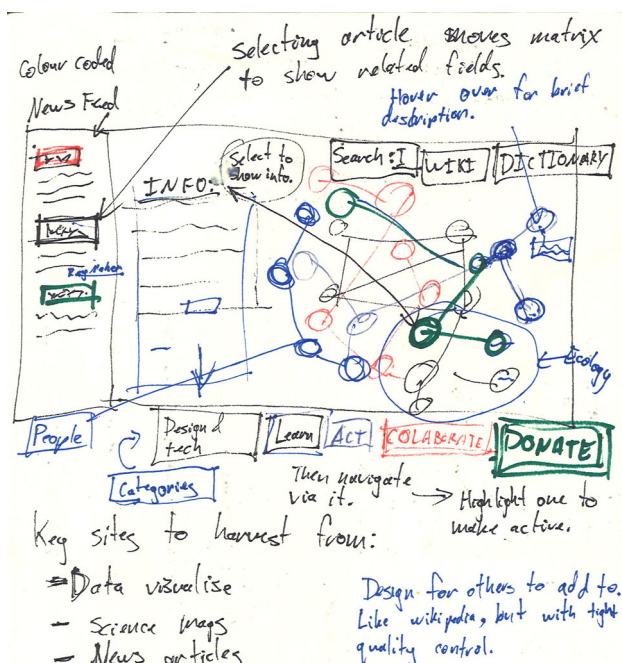 Selecting article moves matrix
to show related fields.
Colour coded
News Feed
Hover over for brief
description.
Select to
show info.
Search: I
WIKI
DICTIONARY
INFO:
Ecology
People
Design &
tech
Learn
ACT
COLABERATE
DONATE
Categories
Then navigate
via it.
Highlight one to
make active.
Key sites to harvest from:
- Data visualise
- Science maps
- News articles
Design for others to add to.
Like wikipedia, but with tight
quality control.